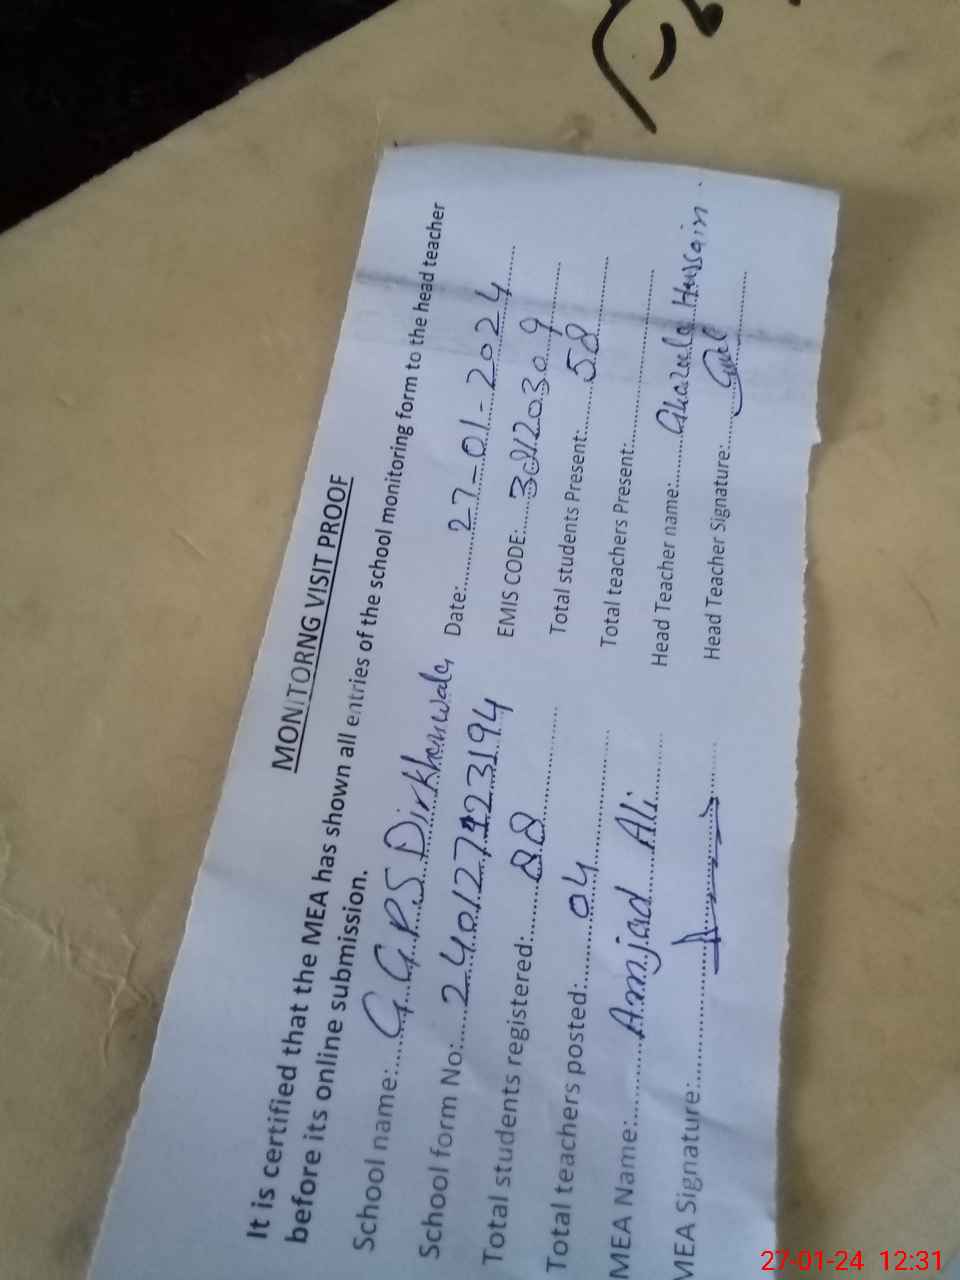 MONITORNG VISIT PROOF
It is certified that the MEA has shown all entries of the school monitoring form to the head teacher
before its online submission.
School name: G.G.P.S Dirkhanwala Date: 27-01-2024
School form No: 2401277423194 EMIS CODE: 39120309
Total students registered: 88 Total students Present: 58
Total teachers posted: 04 Total teachers Present:
MEA Name: Amjad Ali Head Teacher name: Ghazala Hussain
MEA Signature: Head Teacher Signature:
27-01-24 12:31